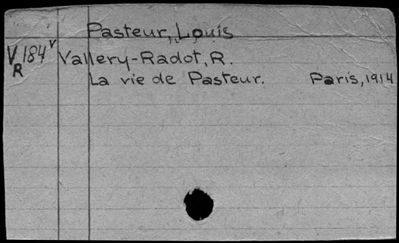 Pasteur, Louis
V 184 v Vallery-Radot, R.
R La vie de Pasteur. Paris, 1914